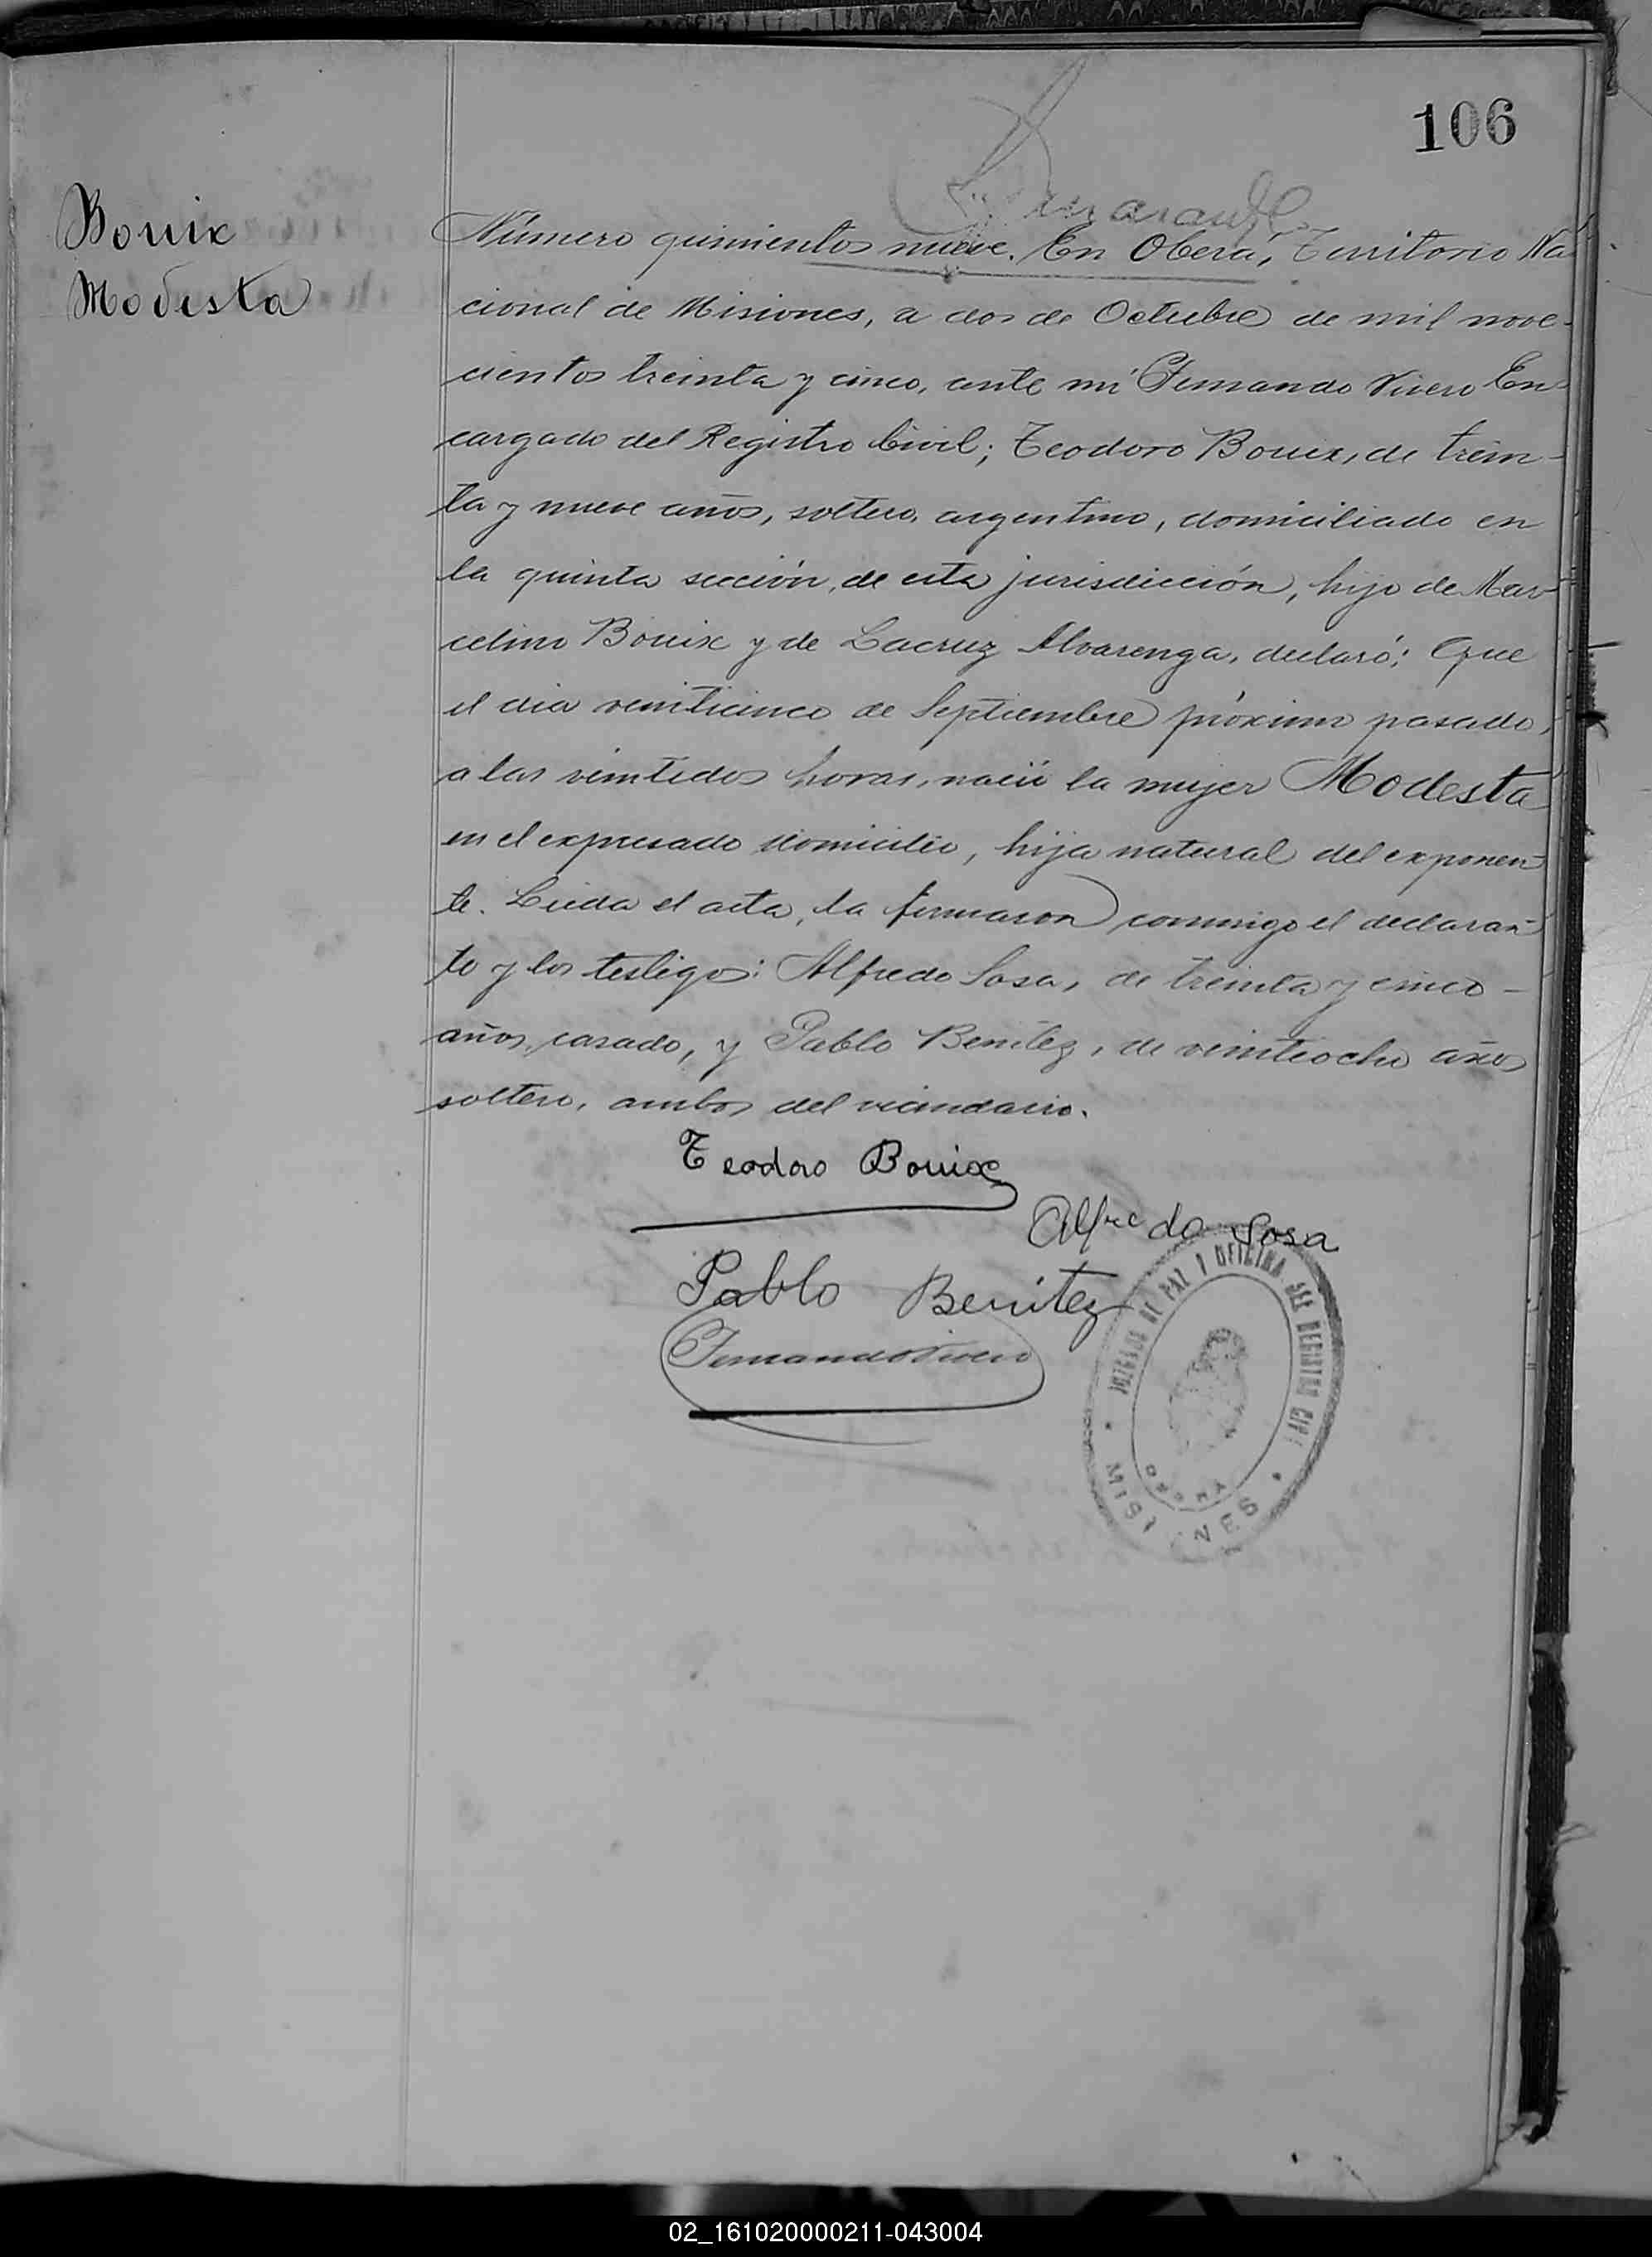 106
Bouix
Modesta
Número quinientos nueve. En Oberá, Territorio Na-
cional de Misiones, a dos de Octubre de mil nove-
cientos treinta y cinco, ante mi Fernando Vivero En-
cargado del Registro Civil; Teodoro Bouix, de trein-
ta y nueve años, soltero, argentino, domiciliado en
la quinta sección, de esta jurisdicción, hijo de Mar-
celino Bouix y de Lacruz Alvarenga, declaró; Que
el dia veinticinco de Septiembre próximo pasado,
a las veintidos horas, nació la mujer Modesta
en el expresado domicilio, hija natural del exponen-
te. Leida el acta, la firmaron conmigo el declaran-
te y los testigos: Alfredo Sosa, de treinta y cinco -
años, casado, y Pablo Benitez, de veintiocho años
soltero, ambos del vecindario.
Teodoro Bouix
Alfredo Sosa
Pablo Benitez
Fernando Vivero
JUZGADO DE PAZ Y OFICINA DEL REGISTRO CIVIL
OBERA
MISIONES
02_161020000211-043004